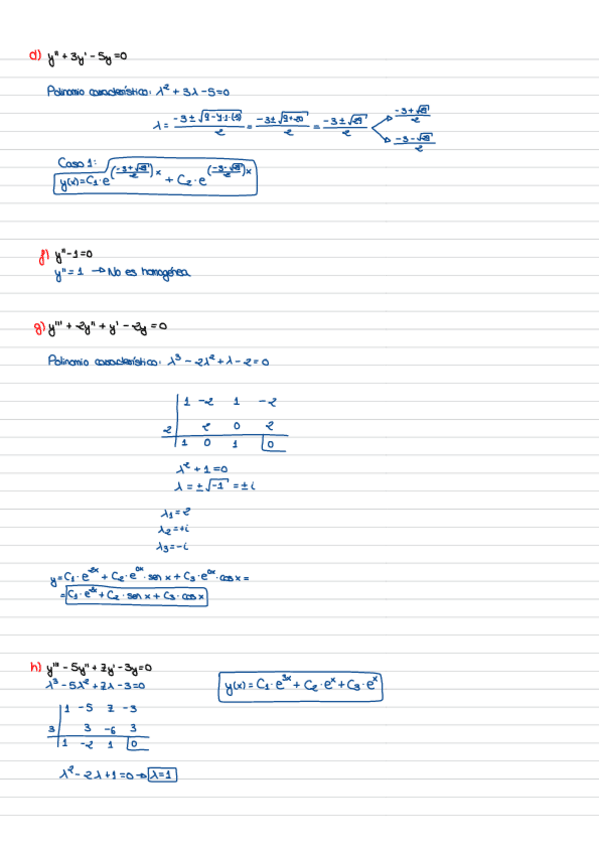 d) y'' + 3y' - 5y = 0
Polinomio característico: λ² + 3λ - 5 = 0
λ = (-3 ± √(9 - 4·1·(-5)))/2 = (-3 ± √(9+20))/2 = (-3 ± √29)/2 → (-3 + √29)/2
→ (-3 - √29)/2
Caso 1:
y(x) = C₁·e^((-3+√29)/2)x + C₂·e^((-3-√29)/2)x
f) y'' - 1 = 0
y'' = 1 → No es homogénea
g) y''' + 2y'' + y' - 2y = 0
Polinomio característico: λ³ - 2λ² + λ - 2 = 0
1 -2 1 -2
2 2 0 2
1 0 1 0
λ² + 1 = 0
λ = ±√-1 = ±i
λ₁ = 2
λ₂ = +i
λ₃ = -i
y = C₁·e^2x + C₂·e^0x·sen x + C₃·e^0x·cos x =
= C₁·e^2x + C₂·sen x + C₃·cos x
h) y''' - 5y'' + 7y' - 3y = 0
λ³ - 5λ² + 7λ - 3 = 0
y(x) = C₁·e^3x + C₂·e^x + C₃·e^x
1 -5 7 -3
3 3 -6 3
1 -2 1 0
λ² - 2λ + 1 = 0 → λ = 1